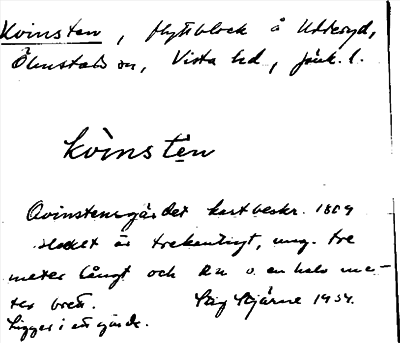 Kvinsten, flyttblock å Utteryd,
Ölmstads sn, Vista hd, Jönk. l.
kvìnstén
Qvinstensgärdet kartbeskr. 1809
Blocket är trekantigt, ung. tre
meter långt och en o. en halv me-
ter brett. Stig Stjärne 1934.
Ligger i ett gärde.